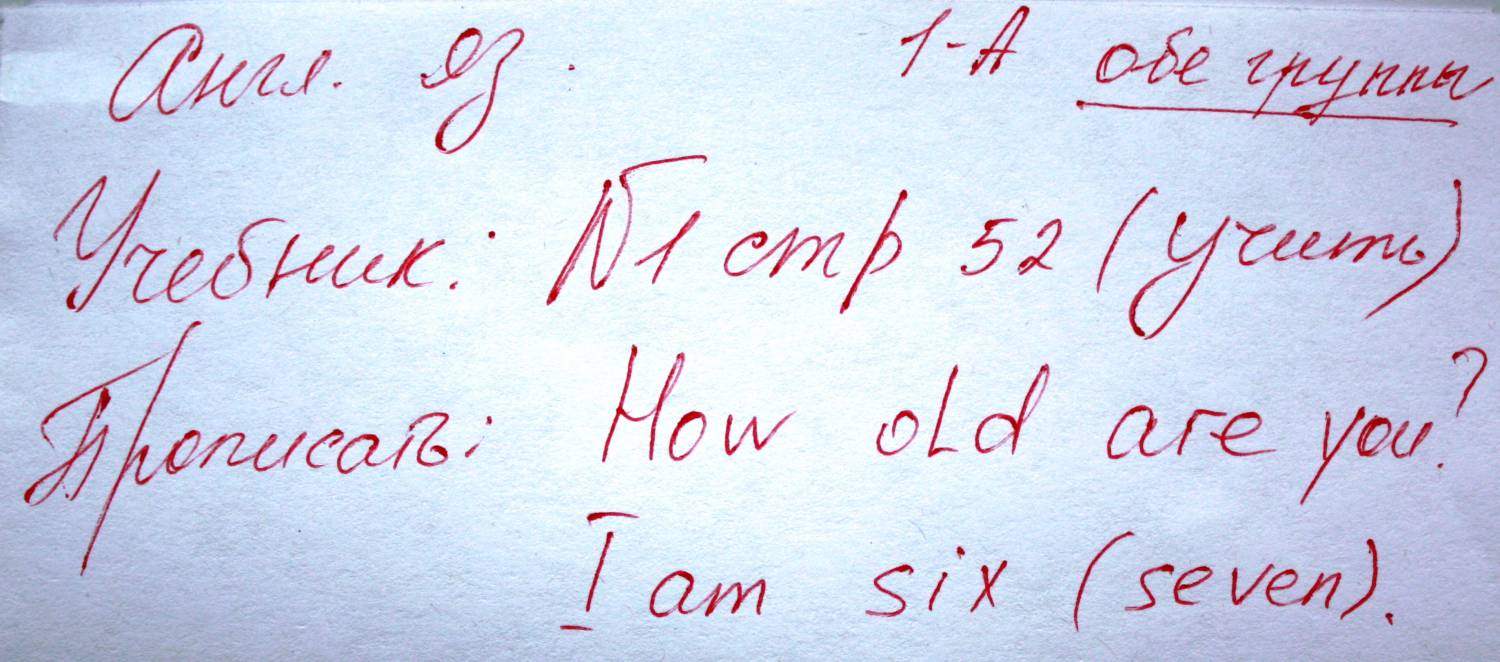 Англ. яз. 1-А обе группы
Учебник: N1 стр 52 (учить)
Прописать: How old are you?
I am six (seven).